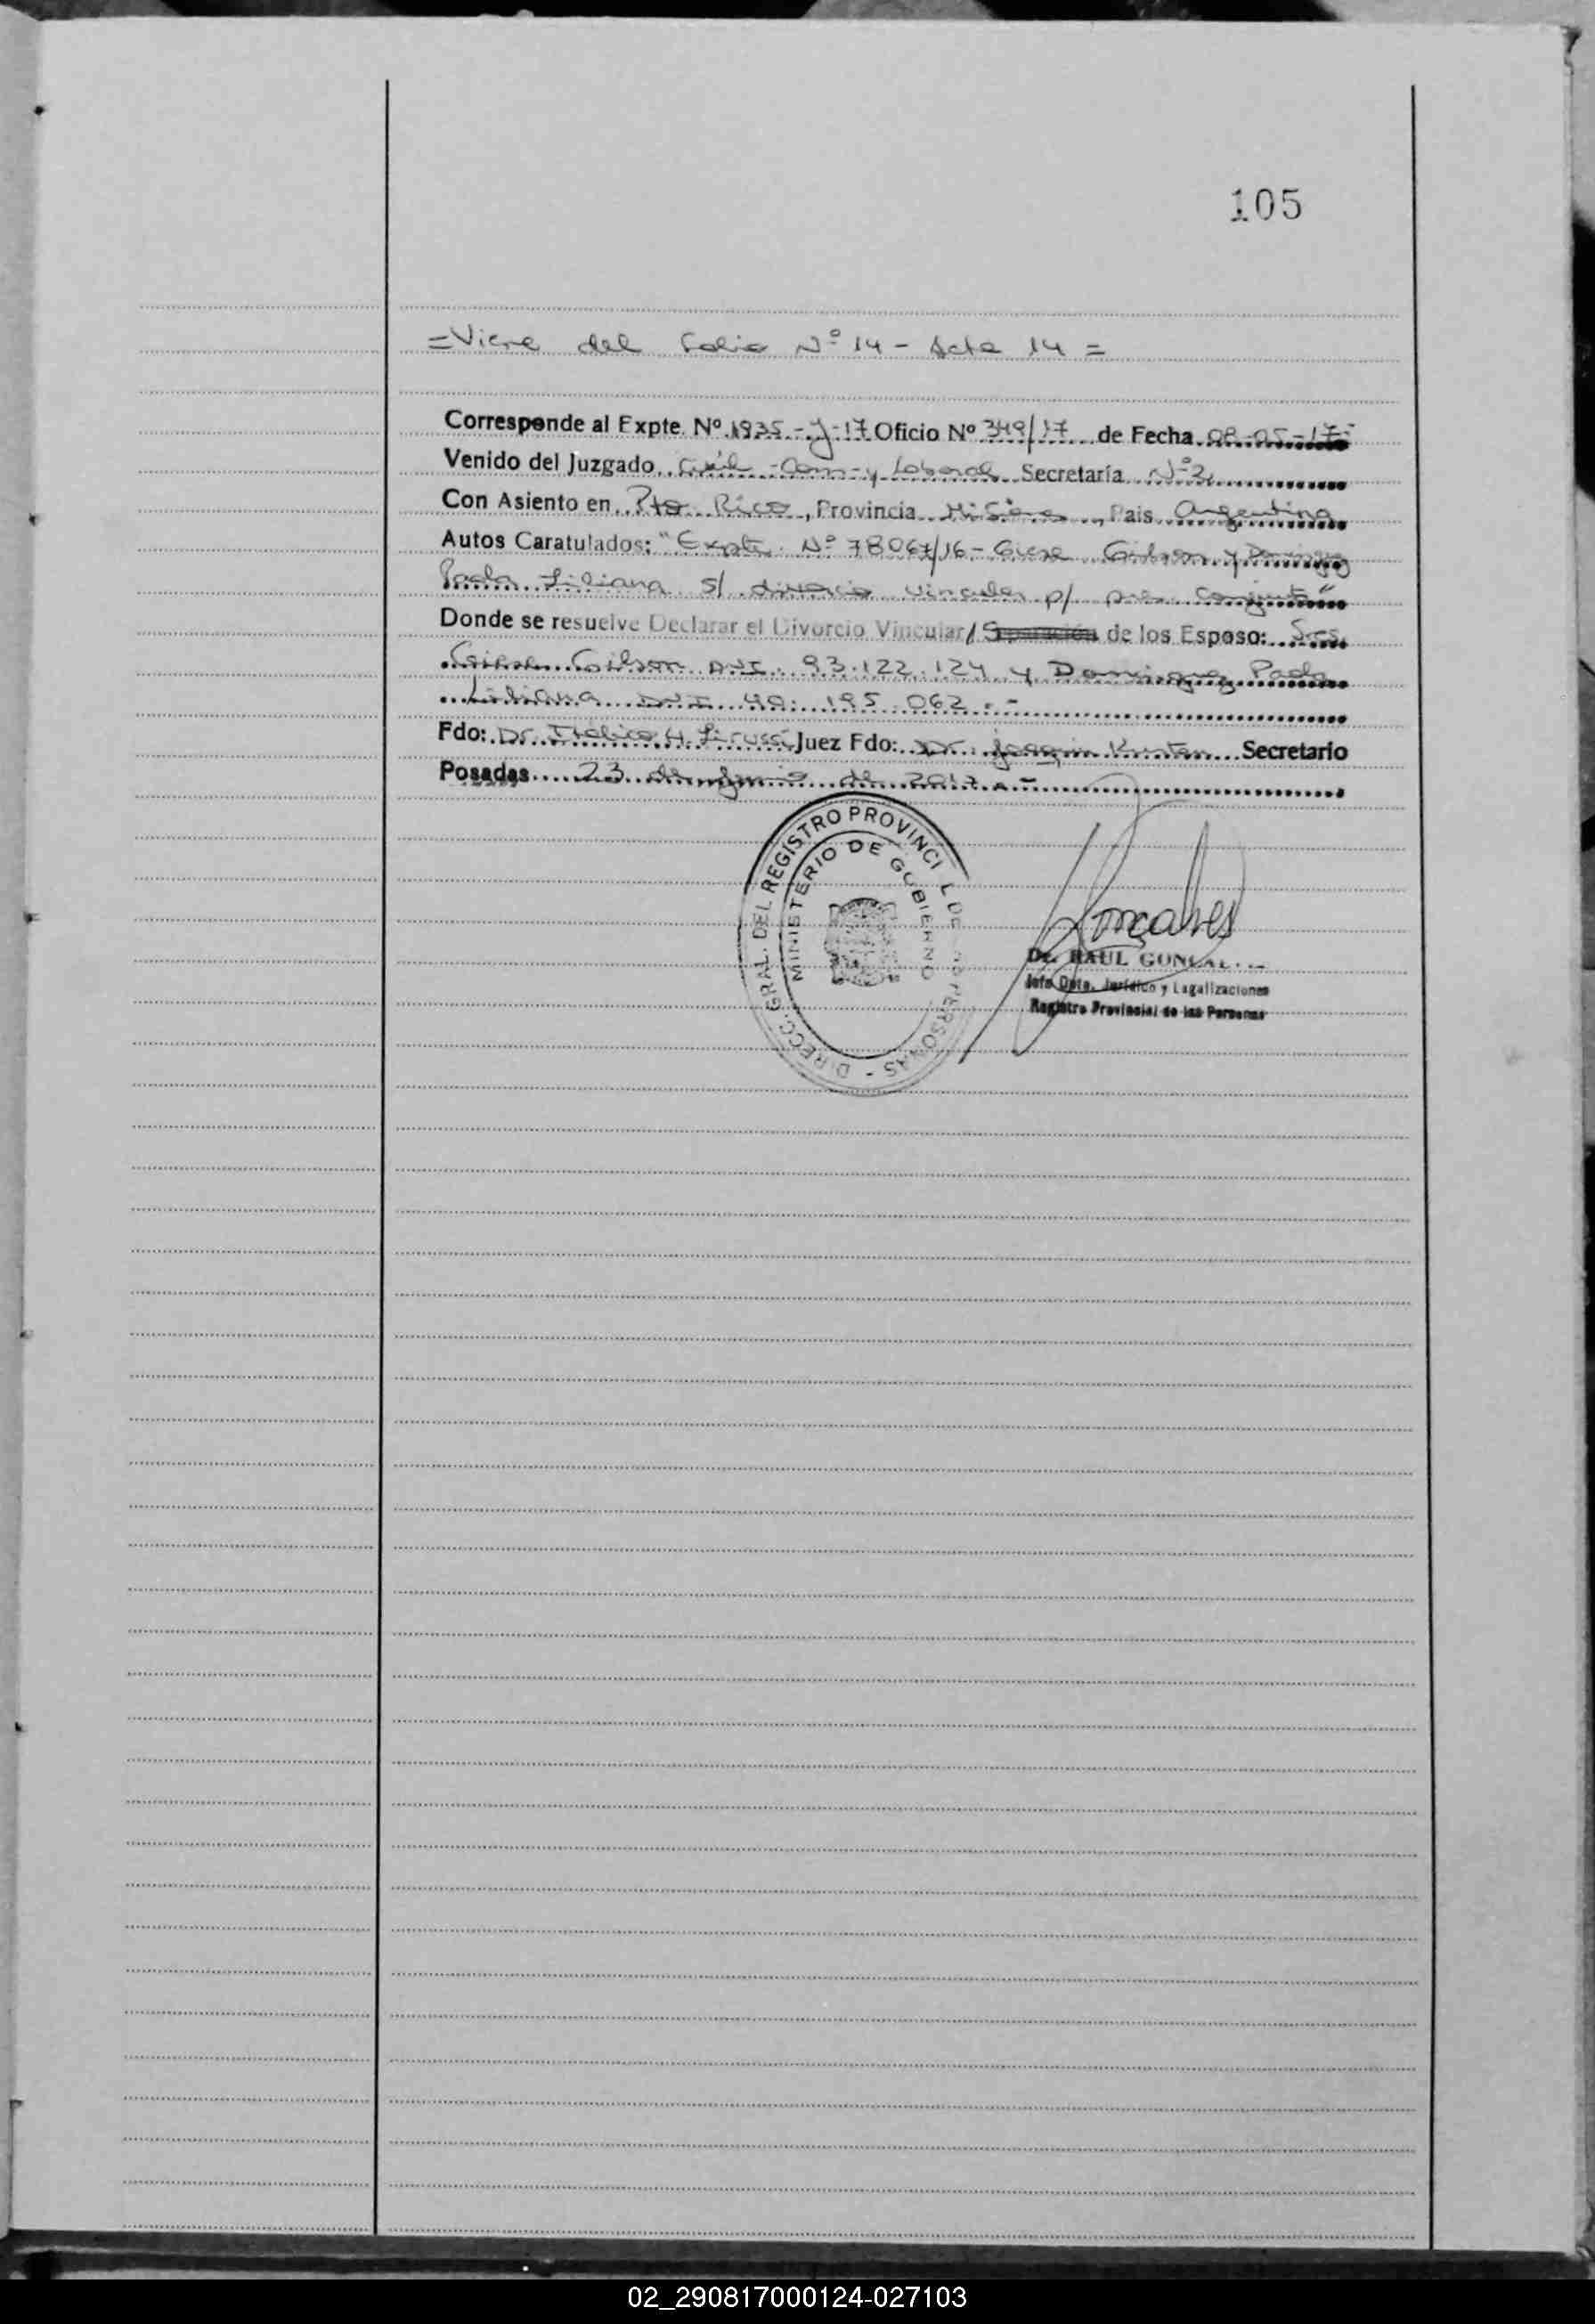 105
=Viene del Folio Nº 14 - Acta 14 =
Corresponde al Expte. Nº 1935 - y - 17 Oficio Nº 349/17 de Fecha 08-05-17-
Venido del Juzgado Civil - Com - y Laboral Secretaría Nº 2
Con Asiento en Pto Rico, Provincia Misiones, Pais Argentina
Autos Caratulados: "Expte. Nº 78067/16 - Gilson y Dominguez
Paola Liliana s/ divorcio vincular p/ pres. Conjunta"
Donde se resuelve Declarar el Divorcio Vincular / Separación de los Esposo: Sres.
Gilson DNI. 93.122.124 y Dominguez Paola
Liliana DNI 40.195.062.-
Fdo: Dr. H. Juez Fdo: Dr. Joaquin Secretario
Posadas 23 de Junio de 2017.-
DIRECC. GRAL. DEL REGISTRO PROVINCI L DE PERSONAS -
MINISTERIO DE GOBIERNO
Goncalves
Dr. RAUL GONCAL
Jefe Dpto. Jurídico y Legalizaciones
Registro Provincial de las Personas
02_290817000124-027103